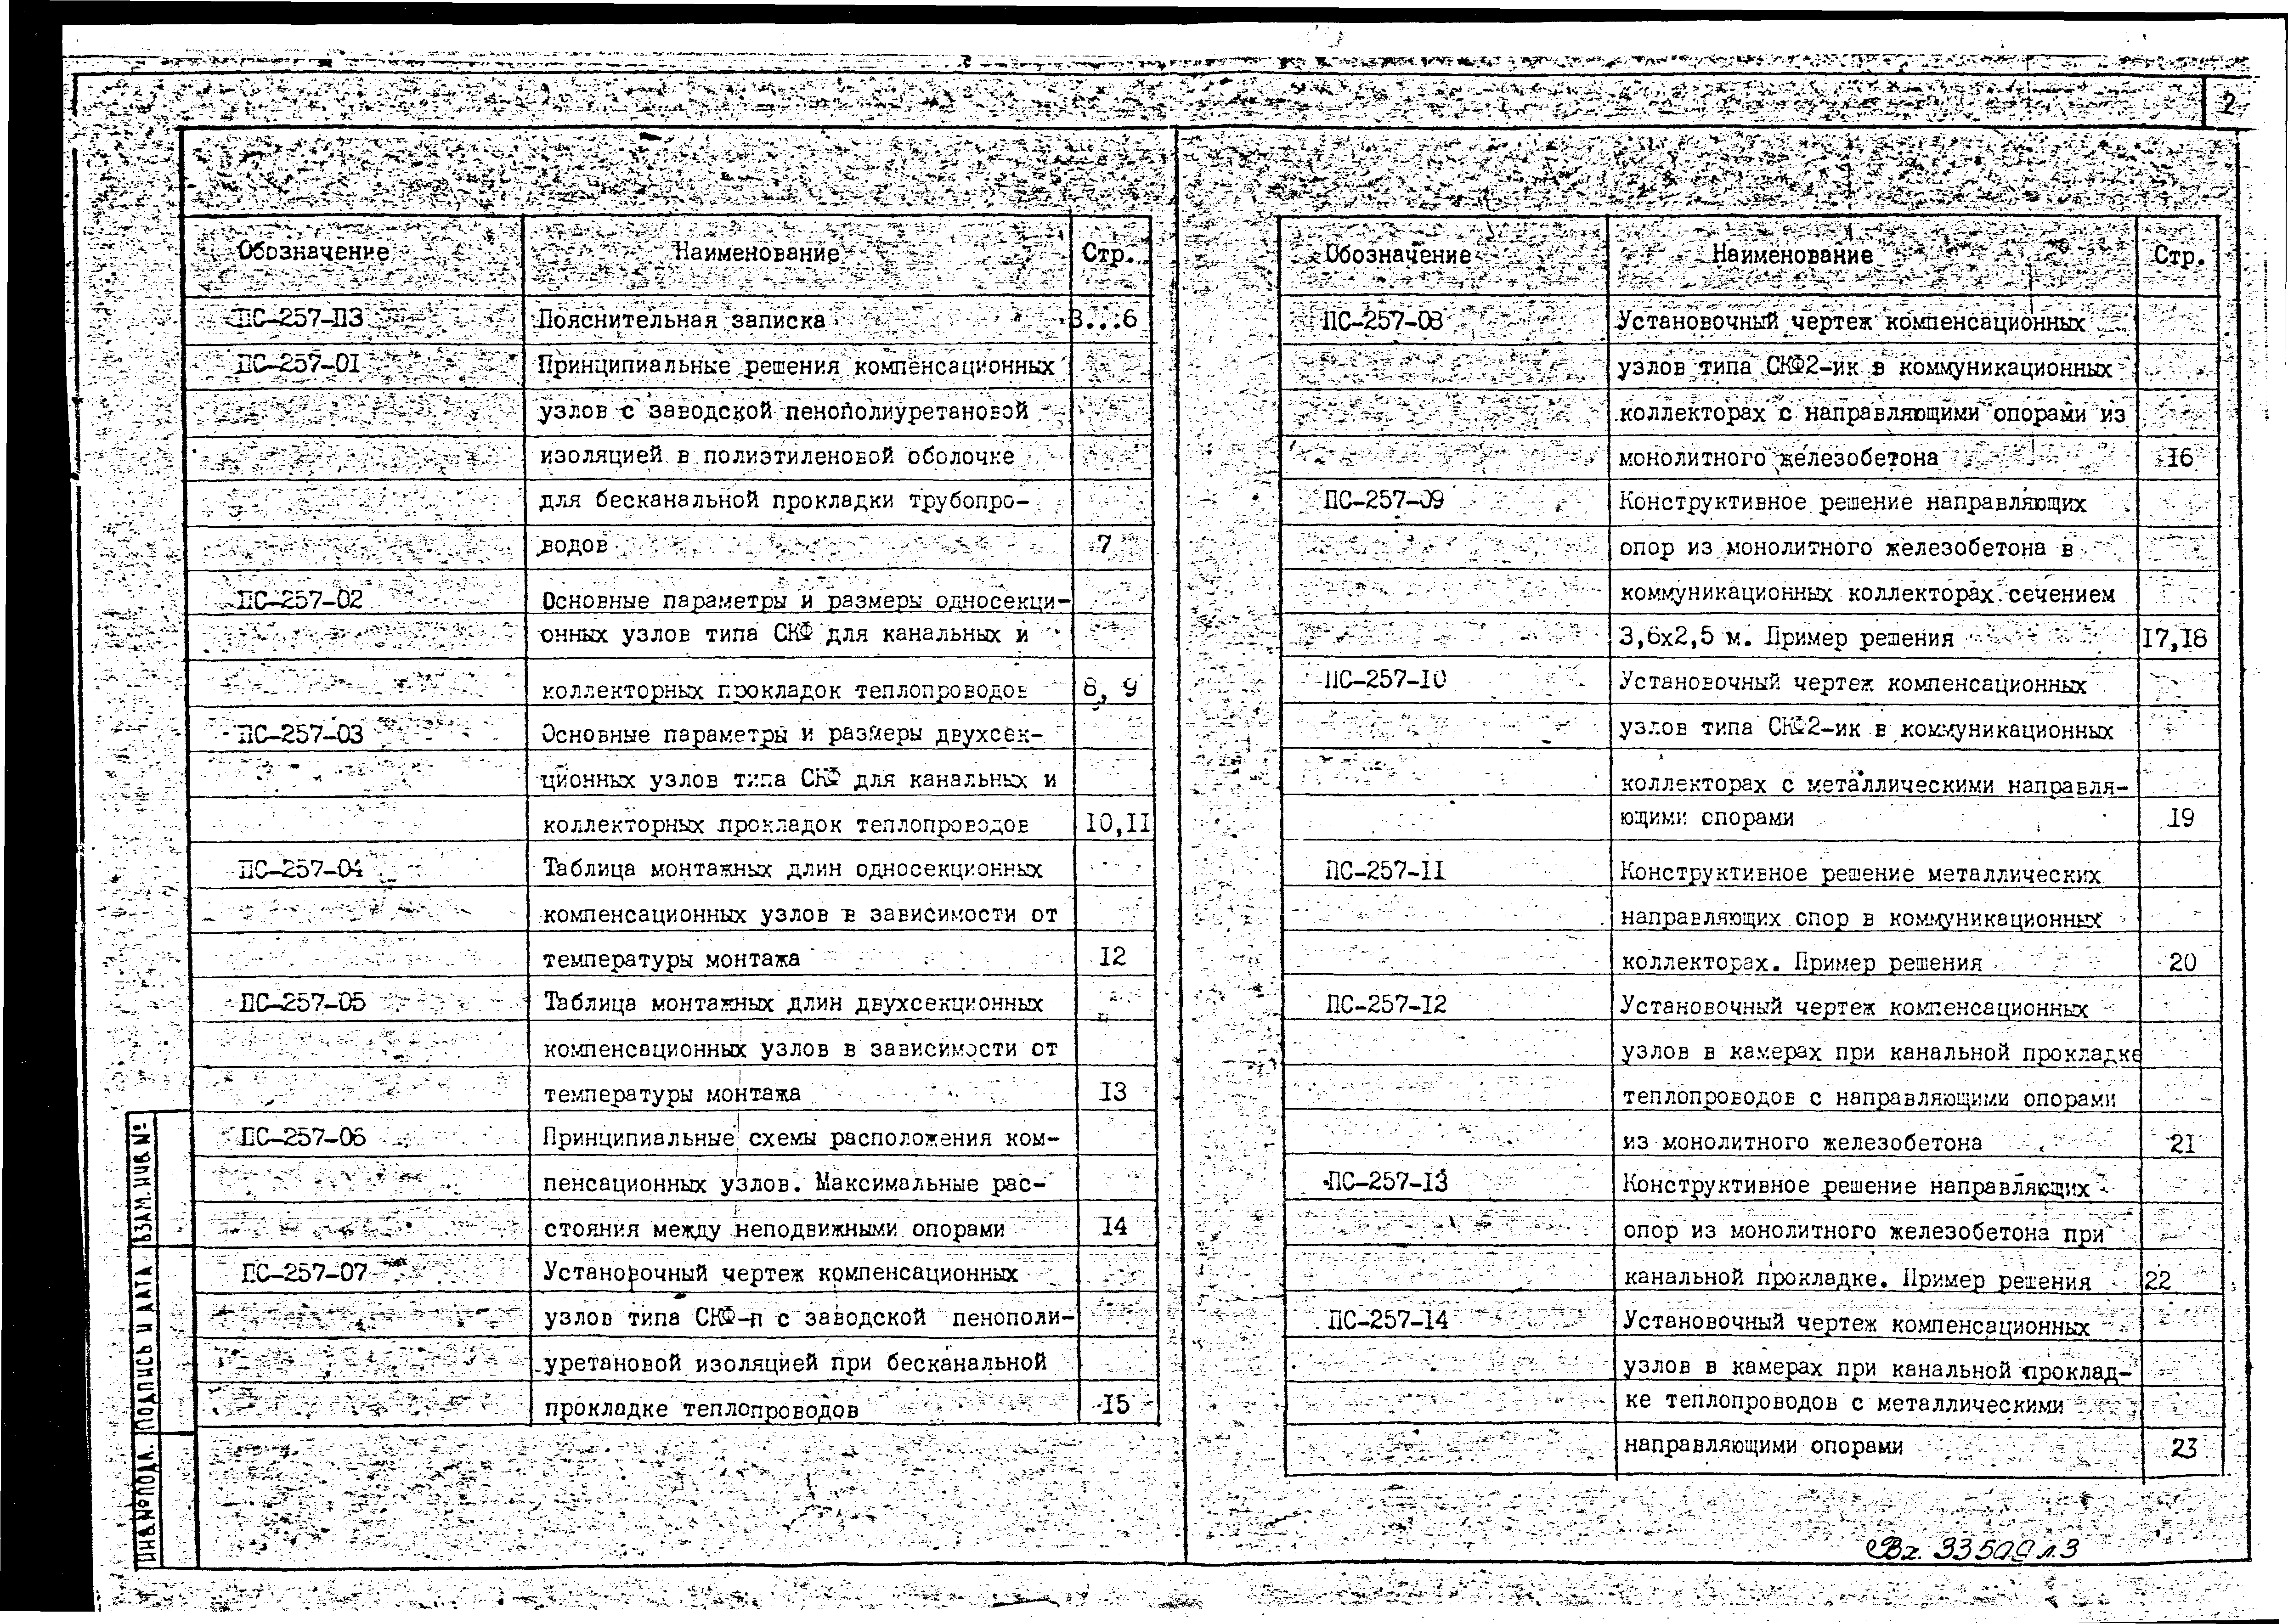 2
Обозначение Наименование Стр.
ПС-257-ПЗ Пояснительная записка 3...6
ПС-257-01 Принципиальные решения компенсационных
узлов с заводской пенополиуретановой
изоляцией в полиэтиленовой оболочке
для бесканальной прокладки трубопро-
водов 7
ПС-257-02 Основные параметры и размеры односекци-
онных узлов типа СКФ для канальных и
коллекторных прокладок теплопроводов 8, 9
ПС-257-03 Основные параметры и размеры двухсек-
ционных узлов типа СКФ для канальных и
коллекторных прокладок теплопроводов 10,11
ПС-257-04 Таблица монтажных длин односекционных
компенсационных узлов в зависимости от
температуры монтажа 12
ПС-257-05 Таблица монтажных длин двухсекционных
компенсационных узлов в зависимости от
температуры монтажа 13
ПС-257-06 Принципиальные схемы расположения ком-
пенсационных узлов. Максимальные рас-
стояния между неподвижными опорами 14
ПС-257-07 Установочный чертеж компенсационных
узлов типа СКФ-п с заводской пенополи-
уретановой изоляцией при бесканальной
прокладке теплопроводов 15
Обозначение Наименование Стр.
ПС-257-08 Установочный чертеж компенсационных
узлов типа СКФ2-ик в коммуникационных
коллекторах с направляющими опорами из
монолитного железобетона 16
ПС-257-09 Конструктивное решение направляющих
опор из монолитного железобетона в
коммуникационных коллекторах сечением
3,6х2,5 м. Пример решения 17,18
ПС-257-10 Установочный чертеж компенсационных
узлов типа СКФ2-ик в коммуникационных
коллекторах с металлическими направля-
ющими опорами 19
ПС-257-11 Конструктивное решение металлических
направляющих опор в коммуникационных
коллекторах. Пример решения 20
ПС-257-12 Установочный чертеж компенсационных
узлов в камерах при канальной прокладке
теплопроводов с направляющими опорами
из монолитного железобетона 21
ПС-257-13 Конструктивное решение направляющих
опор из монолитного железобетона при
канальной прокладке. Пример решения 22
ПС-257-14 Установочный чертеж компенсационных
узлов в камерах при канальной проклад-
ке теплопроводов с металлическими
направляющими опорами 23
ИНВ№ПОДЛ. ПОДПИСЬ И ДАТА ВЗАМ.ИНВ№
Вх. 33509 л.3